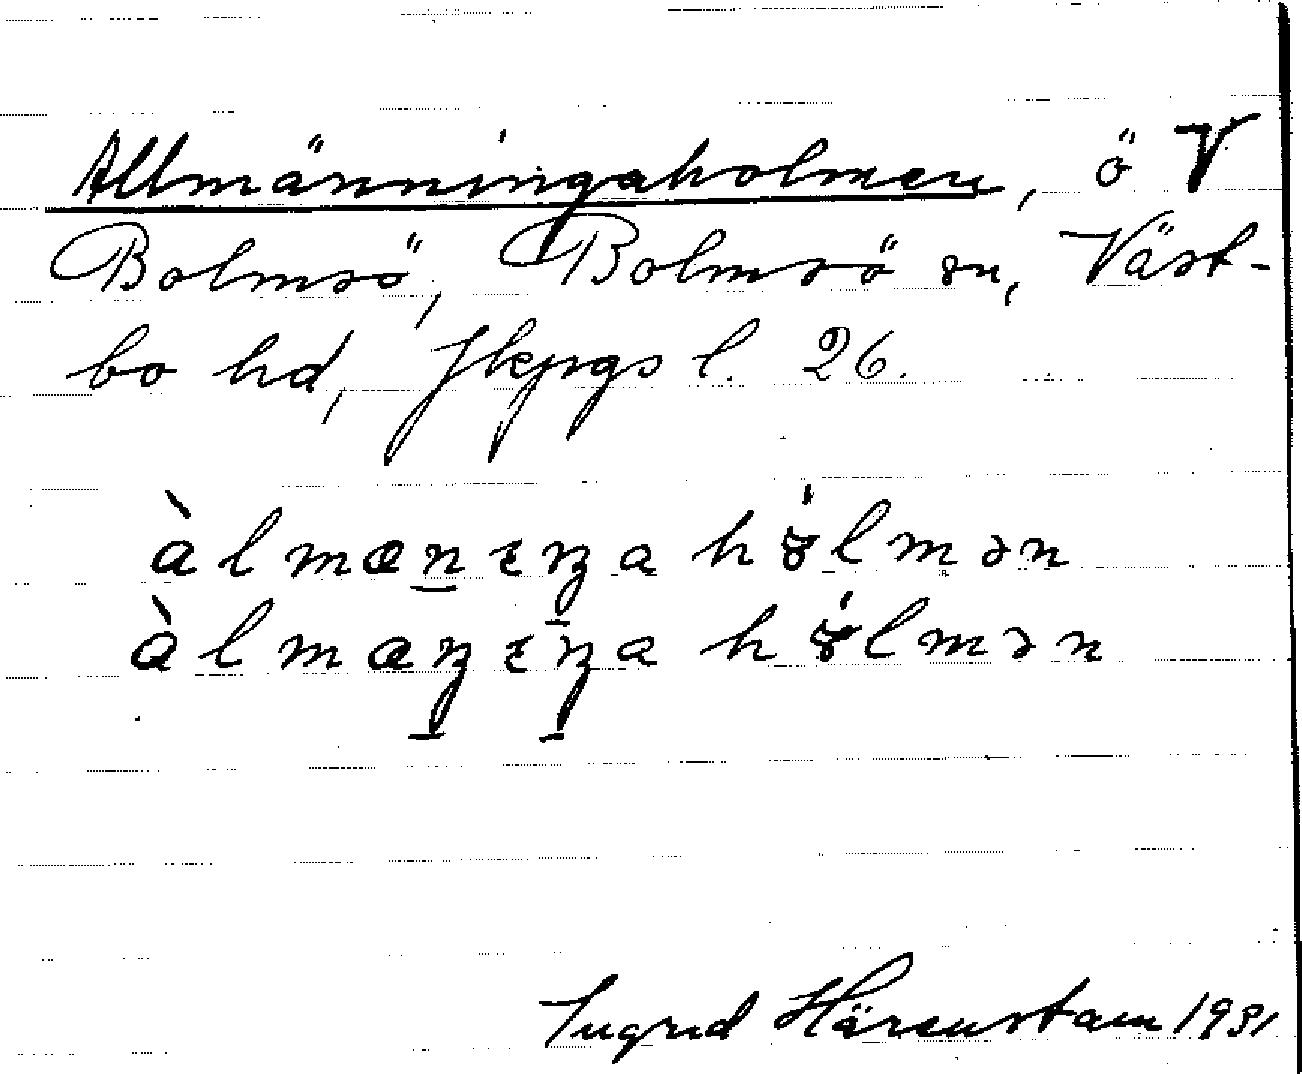 Allmänningaholmen, ö V
Bolmsö, Bolmsö sn, Väst-
bo hd, Jkpgs l. 26.
àlmænɪŋa hólmən
àlmæŋɪŋa hólmən
Ingrid Härenstam 1931